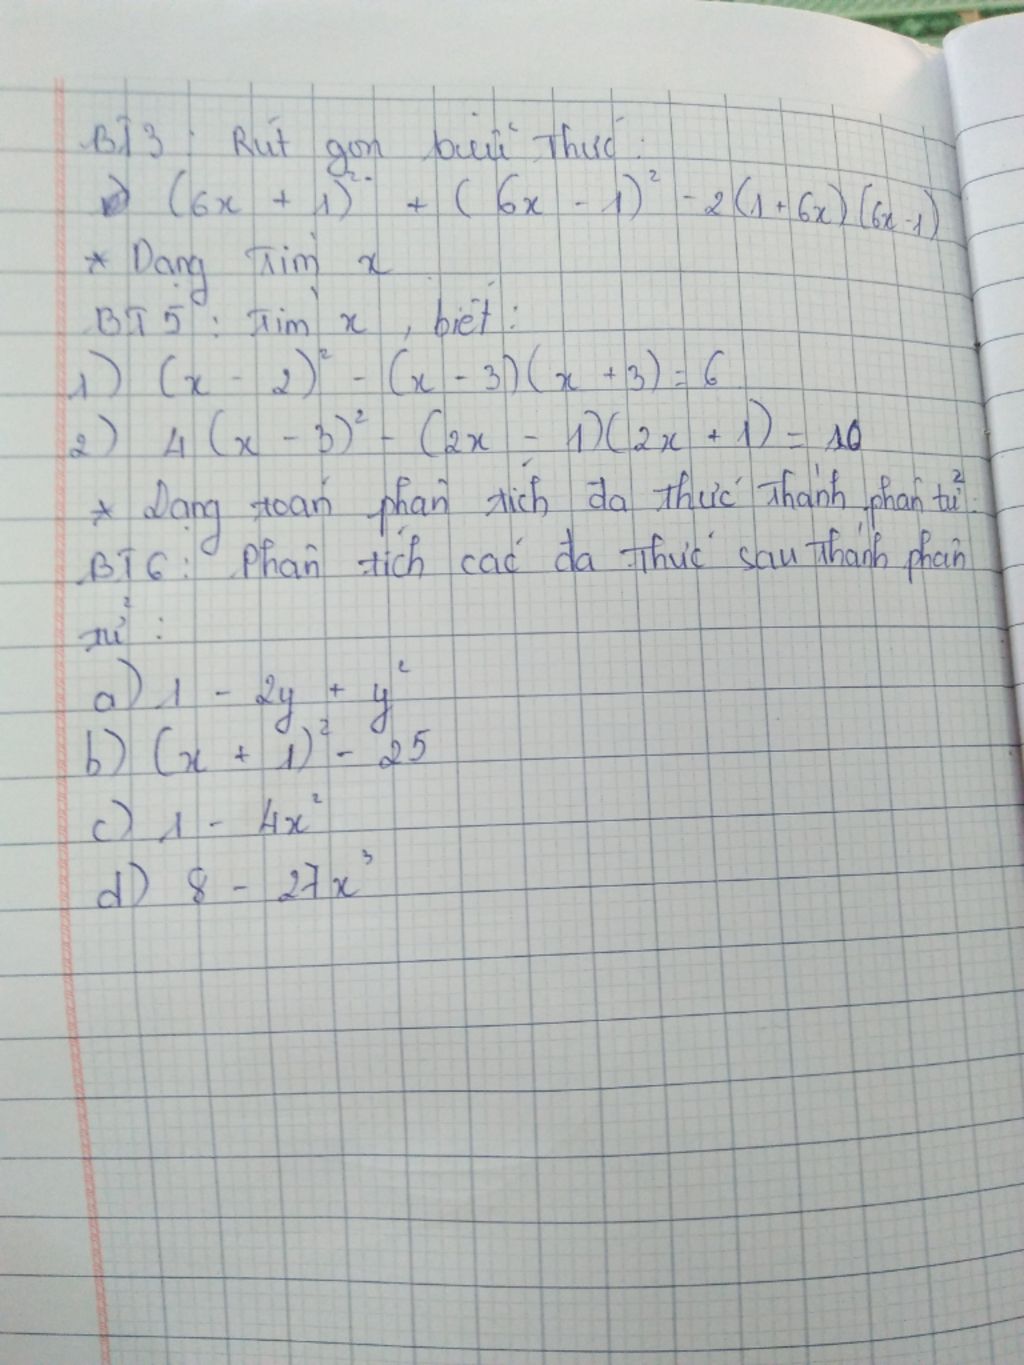 BT3: Rút gọn biểu thức:
(6x + 1)² + (6x - 1)² - 2(1 + 6x)(6x - 1)
* Dạng tìm x
BT5: Tìm x, biết:
1) (x - 2)² - (x - 3)(x + 3) = 6
2) 4(x - 3)² - (2x - 1)(2x + 1) = 10
* Dạng toán phân tích đa thức thành phân tử.
BT6: Phân tích các đa thức sau thành phân
tử:
a) 1 - 2y + y²
b) (x + 1)² - 25
c) 1 - 4x²
d) 8 - 27x³